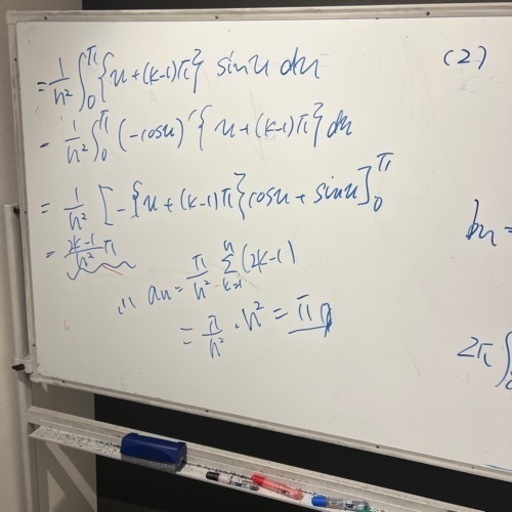 = 1/n² ∫₀^π {u+(k-1)π} sinu du
= 1/n² ∫₀^π (-cosu)' {u+(k-1)π} du
= 1/n² [-{u+(k-1)π}cosu + sinu]₀^π
= (2k-1)/n² π
∴ an = π/n² Σ_{k=1}^{n} (2k-1)
= π/n² · n² = π
(2)
bn =
2π ∫